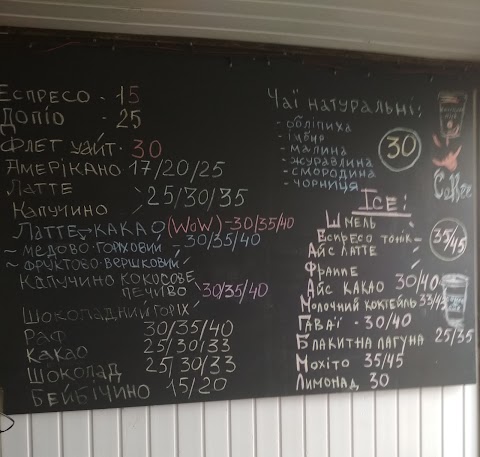 Еспресо - 15
Допіо - 25
Флет уайт - 30
Амерікано 17/20/25
Латте
Капучино 25/30/35
Латте-какао (WOW) - 30/35/40
~ Медово-горіховий - 30/35/40
~ Фруктово-вершковий
Капучино кокосове
печиво 30/35/40
Шоколадний горіх
Раф 30/35/40
Какао 25/30/33
Шоколад 25/30/33
Бейбічино 15/20
Чаї натуральні:
- обліпиха
- імбир
- малина
- журавлина
- смородина
- чорниця
30
Coffee
Ice:
Шмель
Еспресо тонік
Айс латте
35/45
Фраппе
Айс какао 30/40
Молочний коктейль 33/45
Гаваї - 30/40
Блакитна лагуна 25/35
Мохіто 35/45
Лимонад 30